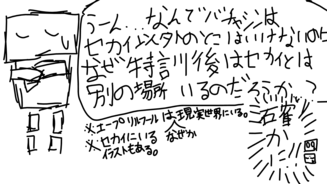 うーん...なんでバチャシンは
セカイ以外のとこはいけないのに
なぜ特訓後はセカイとは
別の場所いるのだろうか?
※エープリルフールは現実世界にいる。
※セカイにいる
イラストもある。
なぜか
確かに!!